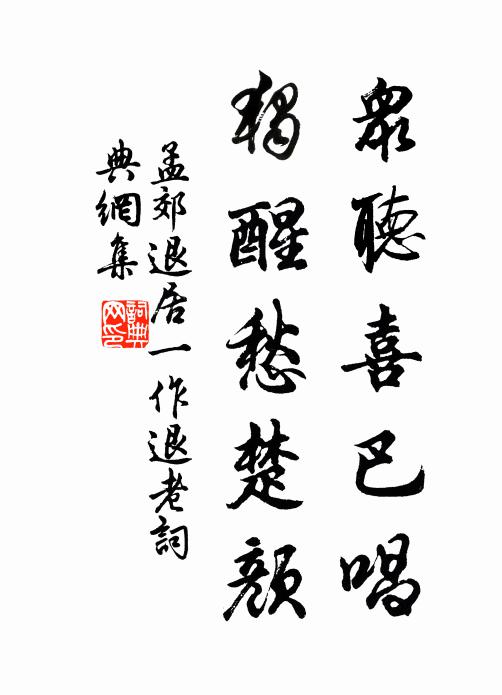 眾聽喜巴唱
獨醒愁楚顏
孟郊退居一作退老詞
典網集
詞典网印